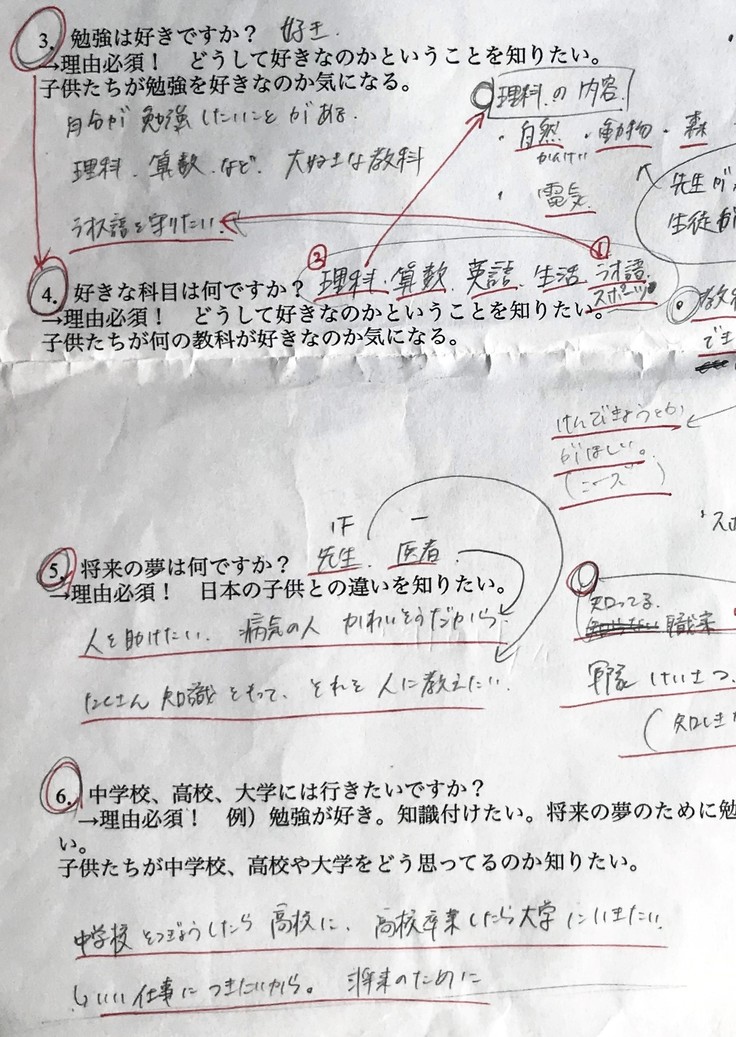 3. 勉強は好きですか? 好き
→理由必須! どうして好きなのかということを知りたい。
子供たちが勉強を好きなのか気になる。
自分が勉強したいことがある。
理科、算数、など、大好きな教科
ラオス語を守りたい。
理科の内容
・自然 ・動物 ・森
かんけい
・電気
先生が
生徒が
② ①
4. 好きな科目は何ですか? 理科、算数、英語、生活、ラオ語、
スポーツ
→理由必須! どうして好きなのかということを知りたい。
子供たちが何の教科が好きなのか気になる。
でき
けんびきょうとか
がほしい。
(ニーズ)
正 一
5. 将来の夢は何ですか? 先生、医者
→理由必須! 日本の子供との違いを知りたい。
人を助けたい。病気の人かわいそうだから
たくさん知識をもって、それを人に教えたい。
知ってる
職業
軍隊 けいさつ
(知しき
6. 中学校、高校、大学には行きたいですか?
→理由必須! 例)勉強が好き。知識付けたい。将来の夢のために勉
い。
子供たちが中学校、高校や大学をどう思ってるのか知りたい。
中学校そつぎょうしたら高校に、高校卒業したら大学にいきたい
いい仕事につきたいから。将来のために